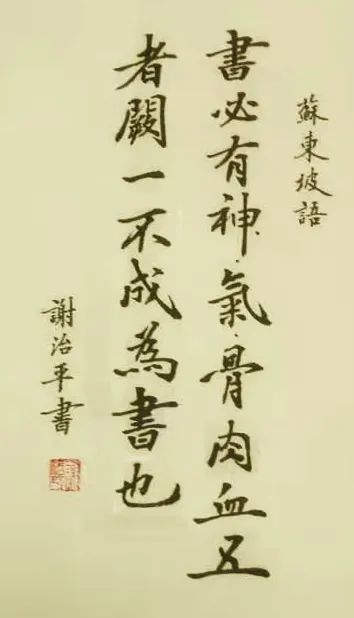 蘇東坡語
書必有神氣骨肉血五
者闕一不成為書也
謝治平書